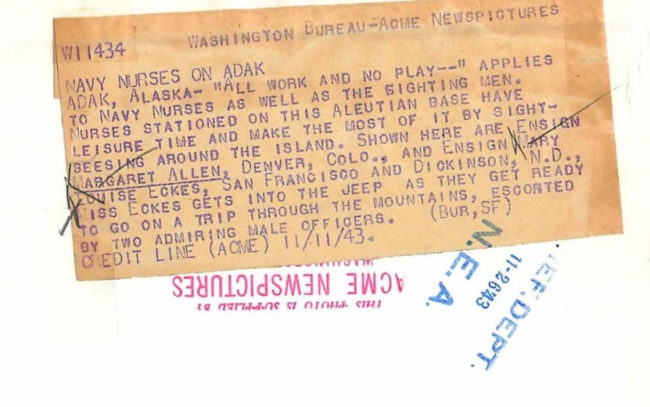 WASHINGTON BUREAU-ACME NEWSPICTURES
W11434
NAVY NURSES ON ADAK
ADAK, ALASKA- "ALL WORK AND NO PLAY--" APPLIES
TO NAVY NURSES AS WELL AS THE GIGHTING MEN.
NURSES STATIONED ON THIS ALEUTIAN BASE HAVE
LEISURE TIME AND MAKE THE MOST OF IT BY SIGHT-
SEESING AROUND THE ISLAND. SHOWN HERE ARE ENSIGN
MARGARET ALLEN, DENVER, COLO., AND ENSIGN MARY
LOUISE ECKES, SAN FRANCISCO AND DICKINSON, N.D.,
MISS ECKES GETS INTO THE JEEP AS THEY GET READY
TO GO ON A TRIP THROUGH THE MOUNTAINS, ESCORTED
BY TWO ADMIRING MALE OFFICERS. (BUR,SF)
CREDIT LINE (ACME) 11/11/43.
THIS PHOTO IS SUPPLIED BY
ACME NEWSPICTURES
REF. DEPT.
11-2643
N.E.A.